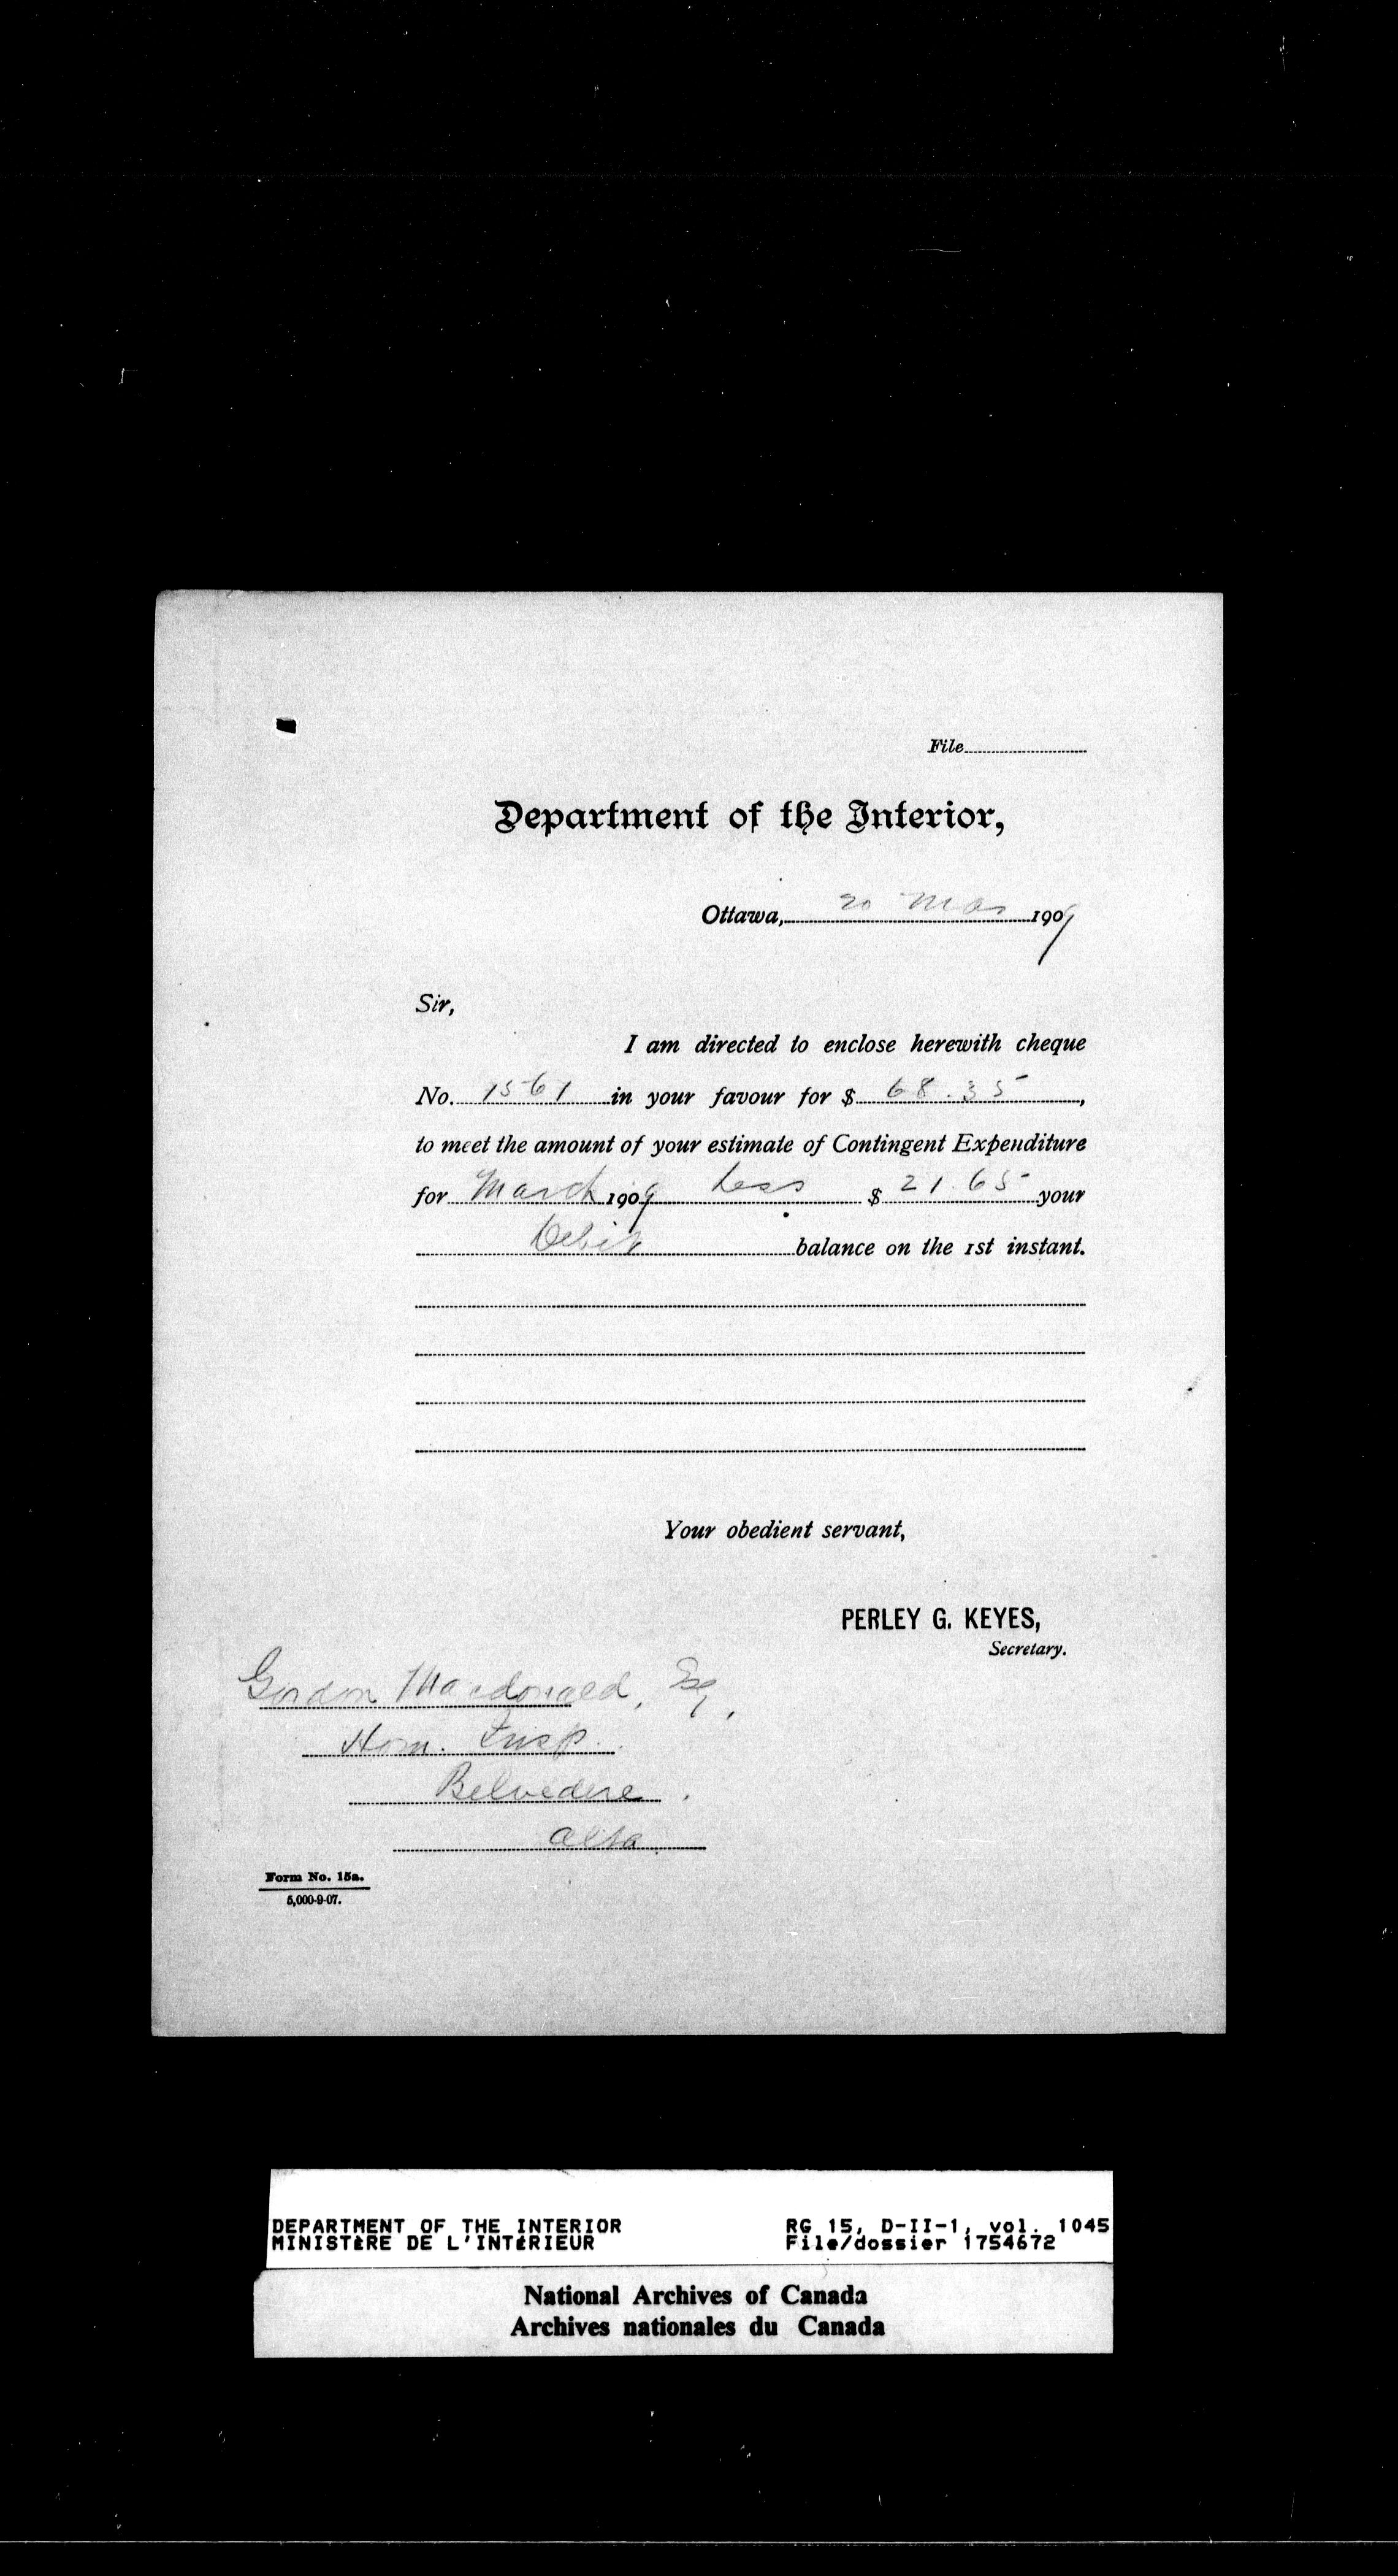 File
Department of the Interior,
Ottawa, 20 Mar 1909
Sir,
I am directed to enclose herewith cheque
No. 1561 in your favour for $ 68.35,
to meet the amount of your estimate of Contingent Expenditure
for March 1909 Less $ 21.65 your
Debit balance on the 1st instant.
Your obedient servant,
PERLEY G. KEYES,
Secretary.
Gordon Macdonald, Esq,
Hom. Insp.
Belvedere.
Alta
Form No. 15a.
5,000-9-07.
DEPARTMENT OF THE INTERIOR RG 15, D-II-1, vol. 1045
MINISTÈRE DE L'INTÉRIEUR File/dossier 1754672
National Archives of Canada
Archives nationales du Canada